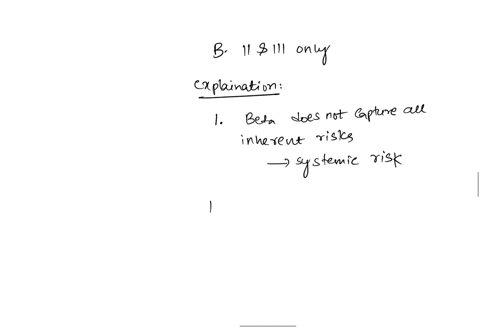 B. II & III only
Explaination:
1. Beta does not capture all
inherent risks
→ systemic risk
I